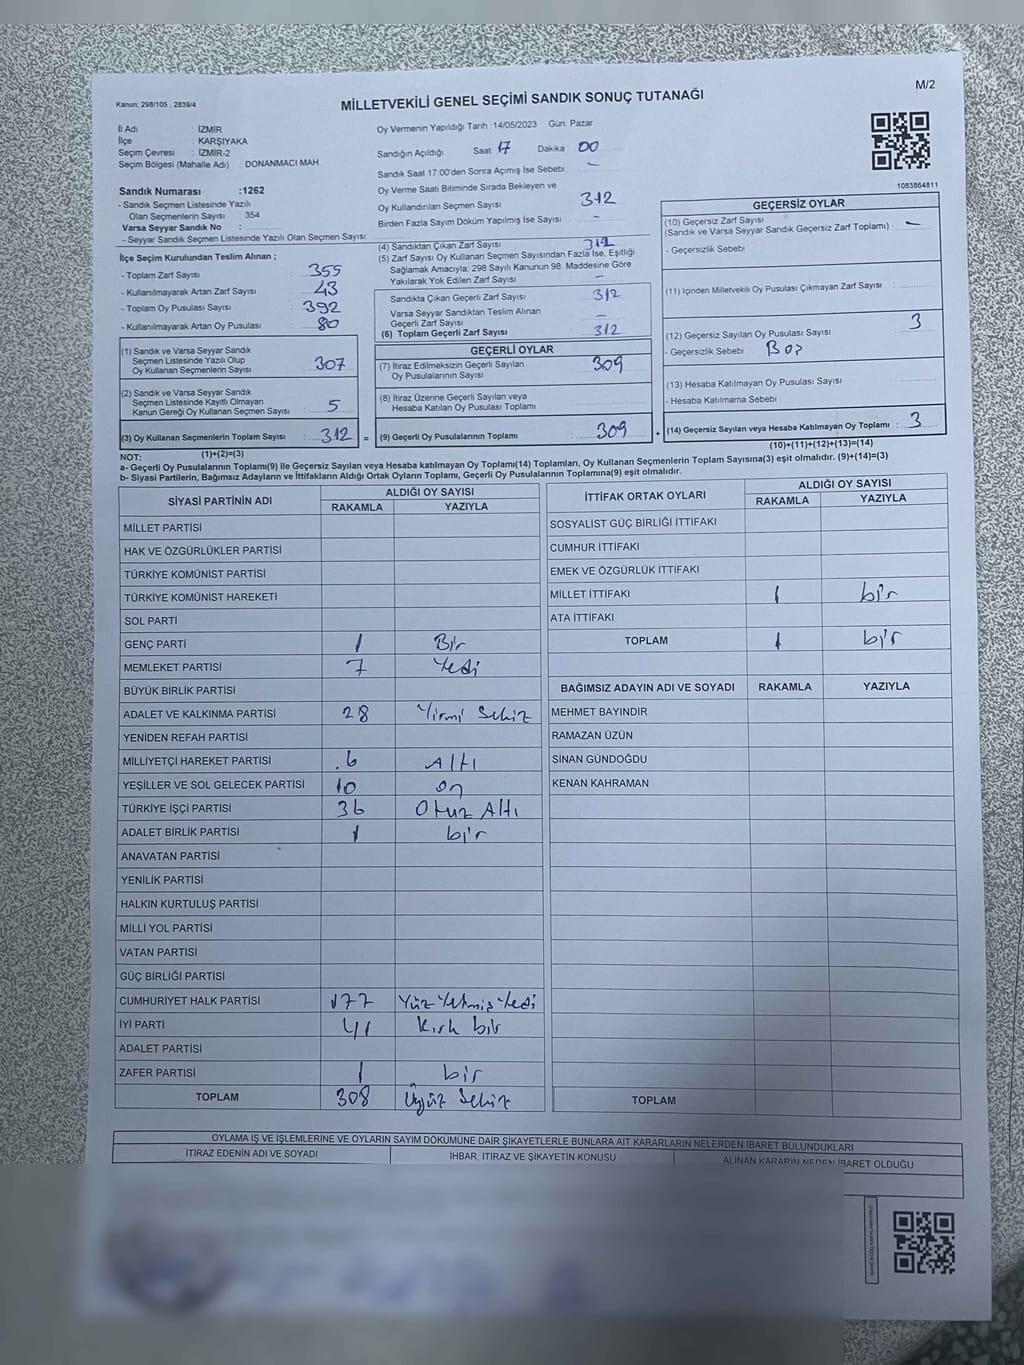 Kanun: 298/105 , 2839/4
M/2
MİLLETVEKİLİ GENEL SEÇİMİ SANDIK SONUÇ TUTANAĞI
İl Adı : İZMİR
İlçe : KARŞIYAKA
Seçim Çevresi : İZMİR-2
Seçim Bölgesi (Mahalle Adı) : DONANMACI MAH
Sandık Numarası :1262
- Sandık Seçmen Listesinde Yazılı
Olan Seçmenlerin Sayısı : 354
Varsa Seyyar Sandık No :
- Seyyar Sandık Seçmen Listesinde Yazılı Olan Seçmen Sayısı
İlçe Seçim Kurulundan Teslim Alınan ;
- Toplam Zarf Sayısı : 355
- Kullanılmayarak Artan Zarf Sayısı : 43
- Toplam Oy Pusulası Sayısı : 392
- Kullanılmayarak Artan Oy Pusulası : 80
(1) Sandık ve Varsa Seyyar Sandık
Seçmen Listesinde Yazılı Olup
Oy Kullanan Seçmenlerin Sayısı : 307
(2) Sandık ve Varsa Seyyar Sandık
Seçmen Listesinde Kayıtlı Olmayan
Kanun Gereği Oy Kullanan Seçmen Sayısı : 5
(3) Oy Kullanan Seçmenlerin Toplam Sayısı : 312 =
(1)+(2)=(3)
Oy Vermenin Yapıldığı Tarih : 14/05/2023 Gün: Pazar
Sandığın Açıldığı Saat 17 Dakika : 00
Sandık Saat 17:00'den Sonra Açımış İse Sebebi : -
Oy Verme Saati Bitiminde Sırada Bekleyen ve
Oy Kullandırılan Seçmen Sayısı : 312
Birden Fazla Sayım Döküm Yapılmış İse Sayısı : -
(4) Sandıktan Çıkan Zarf Sayısı : 312
(5) Zarf Sayısı Oy Kullanan Seçmen Sayısından Fazla İse, Eşitliği
Sağlamak Amacıyla; 298 Sayılı Kanunun 98. Maddesine Göre
Yakılarak Yok Edilen Zarf Sayısı : -
Sandıkta Çıkan Geçerli Zarf Sayısı : 312
Varsa Seyyar Sandıktan Teslim Alınan
Geçerli Zarf Sayısı : -
(6) Toplam Geçerli Zarf Sayısı : 312
GEÇERLİ OYLAR
(7) İtiraz Edilmeksizin Geçerli Sayılan
Oy Pusulalarının Sayısı : 309
(8) İtiraz Üzerine Geçerli Sayılan veya
Hesaba Katılan Oy Pusulası Toplamı
(9) Geçerli Oy Pusulalarının Toplamı : 309 +
1083864811
GEÇERSİZ OYLAR
(10) Geçersiz Zarf Sayısı
(Sandık ve Varsa Seyyar Sandık Geçersiz Zarf Toplamı) : -
- Geçersizlik Sebebi :
(11) İçinden Milletvekili Oy Pusulası Çıkmayan Zarf Sayısı :
(12) Geçersiz Sayılan Oy Pusulası Sayısı : 3
- Geçersizlik Sebebi : Boş
(13) Hesaba Katılmayan Oy Pusulası Sayısı :
- Hesaba Katılmama Sebebi :
(14) Geçersiz Sayılan veya Hesaba Katılmayan Oy Toplamı : 3
(10)+(11)+(12)+(13)=(14)
NOT:
a- Geçerli Oy Pusulalarının Toplamı(9) ile Geçersiz Sayılan veya Hesaba katılmayan Oy Toplamı(14) Toplamları, Oy Kullanan Seçmenlerin Toplam Sayısına(3) eşit olmalıdır. (9)+(14)=(3)
b- Siyasi Partilerin, Bağımsız Adayların ve İttifakların Aldığı Ortak Oyların Toplamı, Geçerli Oy Pusulalarının Toplamına(9) eşit olmalıdır.
SİYASİ PARTİNİN ADI ALDIĞI OY SAYISI
RAKAMLA YAZIYLA
MİLLET PARTİSİ
HAK VE ÖZGÜRLÜKLER PARTİSİ
TÜRKİYE KOMÜNİST PARTİSİ
TÜRKİYE KOMÜNİST HAREKETİ
SOL PARTİ
GENÇ PARTİ 1 Bir
MEMLEKET PARTİSİ 7 Yedi
BÜYÜK BİRLİK PARTİSİ
ADALET VE KALKINMA PARTİSİ 28 Yirmi Sekiz
YENİDEN REFAH PARTİSİ
MİLLİYETÇİ HAREKET PARTİSİ .6 Altı
YEŞİLLER VE SOL GELECEK PARTİSİ 10 On
TÜRKİYE İŞÇİ PARTİSİ 36 Otuz Altı
ADALET BİRLİK PARTİSİ 1 bir
ANAVATAN PARTİSİ
YENİLİK PARTİSİ
HALKIN KURTULUŞ PARTİSİ
MİLLİ YOL PARTİSİ
VATAN PARTİSİ
GÜÇ BİRLİĞİ PARTİSİ
CUMHURİYET HALK PARTİSİ 177 Yüz Yetmiş Yedi
İYİ PARTİ 41 Kırk bir
ADALET PARTİSİ
ZAFER PARTİSİ 1 bir
TOPLAM 308 Üçyüz Sekiz
İTTİFAK ORTAK OYLARI ALDIĞI OY SAYISI
RAKAMLA YAZIYLA
SOSYALİST GÜÇ BİRLİĞİ İTTİFAKI
CUMHUR İTTİFAKI
EMEK VE ÖZGÜRLÜK İTTİFAKI
MİLLET İTTİFAKI 1 bir
ATA İTTİFAKI
TOPLAM 1 bir
BAĞIMSIZ ADAYIN ADI VE SOYADI RAKAMLA YAZIYLA
MEHMET BAYINDIR
RAMAZAN ÜZÜN
SİNAN GÜNDOĞDU
KENAN KAHRAMAN
TOPLAM
OYLAMA İŞ VE İŞLEMLERİNE VE OYLARIN SAYIM DÖKÜMÜNE DAİR ŞİKAYETLERLE BUNLARA AİT KARARLARIN NELERDEN İBARET BULUNDUKLARI
İTİRAZ EDENİN ADI VE SOYADI İHBAR, İTİRAZ VE ŞİKAYETİN KONUSU ALINAN KARARIN NEDEN İBARET OLDUĞU